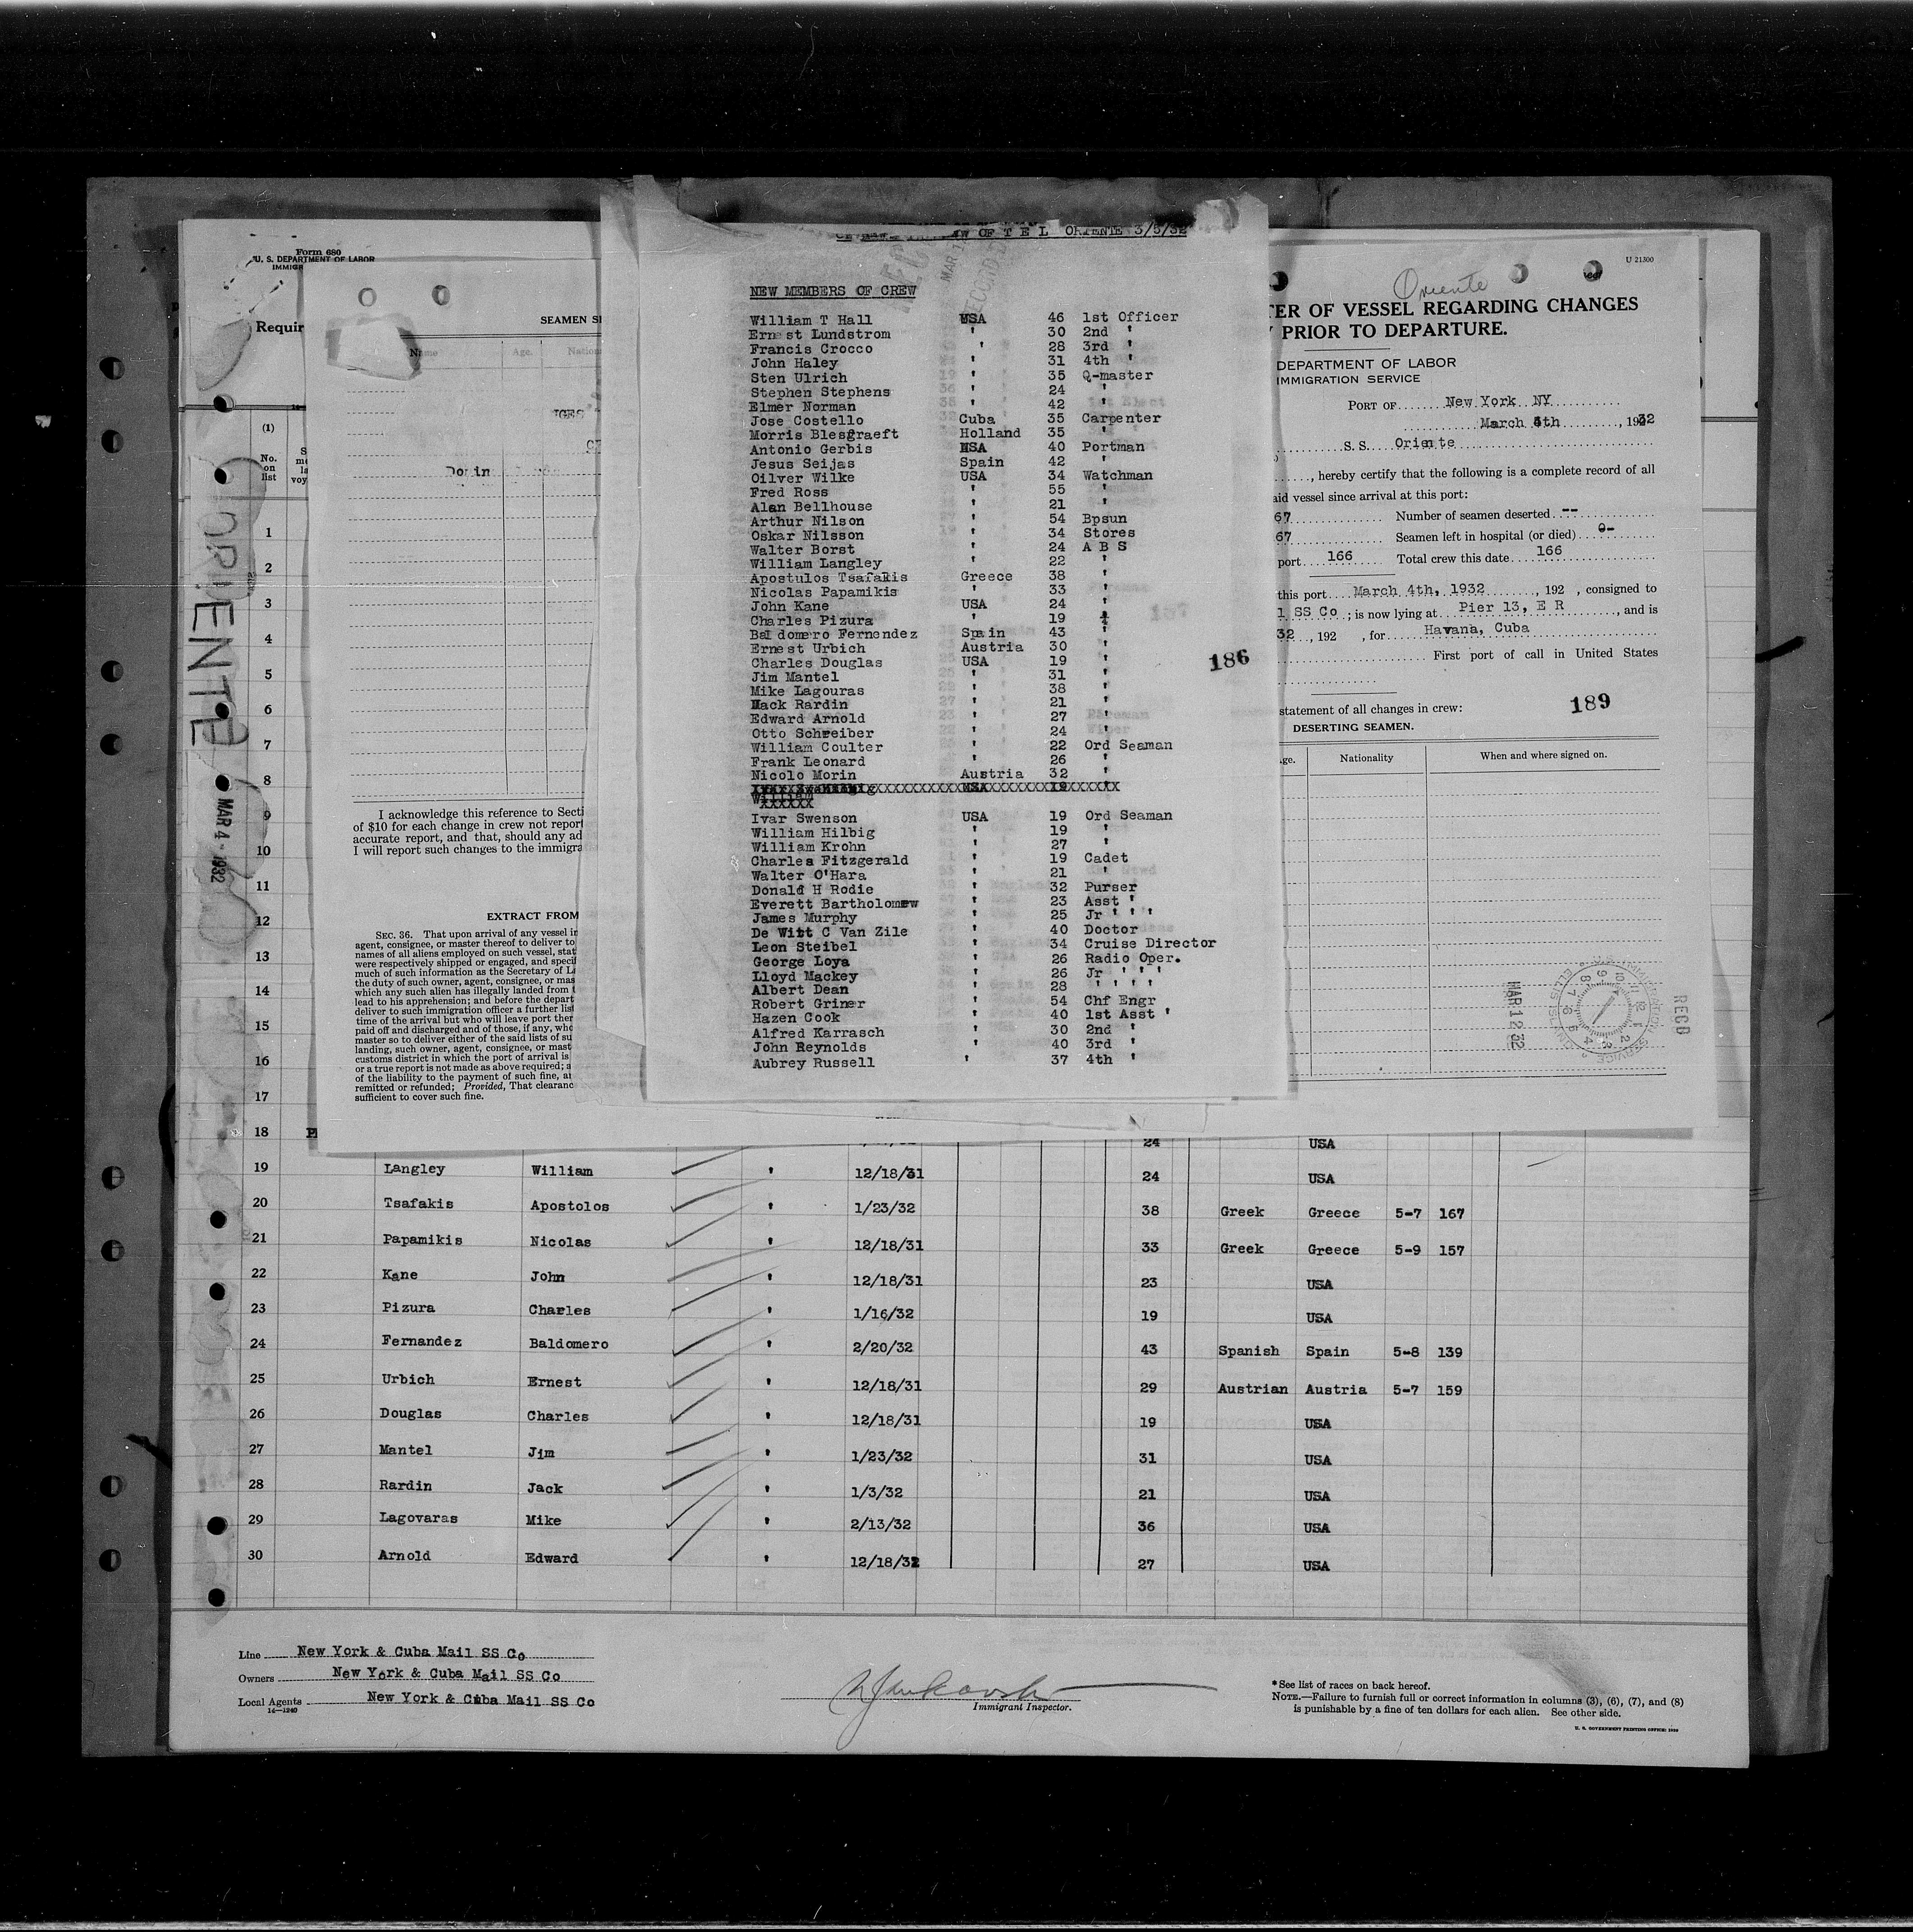 OF T E L ORIENTE 3/5/32
NEW MEMBERS OF CREW
William T Hall USA 46 1st Officer
Ernest Lundstrom ' 30 2nd '
Francis Crocco ' 28 3rd '
John Haley ' 31 4th '
Sten Ulrich ' 35 Q-master
Stephen Stephens ' 24 '
Elmer Norman ' 42 '
Jose Costello Cuba 35 Carpenter
Morris Blesgraeft Holland 35 '
Antonio Gerbis USA 40 Portman
Jesus Seijas Spain 42 '
Oilver Wilke USA 34 Watchman
Fred Ross ' 55 '
Alan Bellhouse ' 21 '
Arthur Nilson ' 54 Bpsun
Oskar Nilsson ' 34 Stores
Walter Borst ' 24 A B S
William Langley ' 22 '
Apostulos Tsafakis Greece 38 '
Nicolas Papamikis ' 33 '
John Kane USA 24 '
Charles Pizura ' 19 '
Baldomero Fernendez Spain 43 '
Ernest Urbich Austria 30 '
Charles Douglas USA 19 '
Jim Mantel ' 31 '
Mike Lagouras ' 38 '
Mack Rardin ' 21 '
Edward Arnold ' 27 '
Otto Schreiber ' 24 '
William Coulter ' 22 Ord Seaman
Frank Leonard ' 26 '
Nicolo Morin Austria 32 '
Ivar Swenson USA 19 Ord Seaman
William Hilbig ' 19 '
William Krohn ' 27 '
Charles Fitzgerald ' 19 Cadet
Walter O'Hara ' 21 '
Donald H Rodie ' 32 Purser
Everett Bartholomew ' 23 Asst '
James Murphy ' 25 Jr ' ' '
De Witt C Van Zile ' 40 Doctor
Leon Steibel ' 34 Cruise Director
George Loya ' 26 Radio Oper.
Lloyd Mackey ' 26 Jr ' ' '
Albert Dean ' 28 ' ' ' '
Robert Griner ' 54 Chf Engr
Hazen Cook ' 40 1st Asst '
Alfred Karrasch ' 30 2nd '
John Reynolds ' 40 3rd '
Aubrey Russell ' 37 4th '
186
Form 680
U. S. DEPARTMENT OF LABOR
IMMIGR
Requir
(1)
No. on list
ORIENTE
MAR 4 - 1932
1
2
3
4
5
6
7
8
9
10
11
12
13
14
15
16
17
18
SEAMEN
Name Age. Nation
I acknowledge this reference to Secti
of $10 for each change in crew not report
accurate report, and that, should any ad
I will report such changes to the immigra
EXTRACT FROM
SEC. 36. That upon arrival of any vessel in
agent, consignee, or master thereof to deliver to
names of all aliens employed on such vessel, stat
were respectively shipped or engaged, and specif
much of such information as the Secretary of La
the duty of such owner, agent, consignee, or mas
which any such alien has illegally landed from t
lead to his apprehension; and before the depart
deliver to such immigration officer a further list
time of the arrival but who will leave port ther
paid off and discharged and of those, if any, who
master so to deliver either of the said lists of su
landing, such owner, agent, consignee, or mast
customs district in which the port of arrival is
or a true report is not made as above required; a
of the liability to the payment of such fine, an
remitted or refunded; Provided, That clearanc
sufficient to cover such fine.
U 21300
Oriente
TER OF VESSEL REGARDING CHANGES
PRIOR TO DEPARTURE.
DEPARTMENT OF LABOR
IMMIGRATION SERVICE
PORT OF New York NY
March 4th, 1932
S. S. Oriente
, hereby certify that the following is a complete record of all
aid vessel since arrival at this port:
67 Number of seamen deserted --
67 Seamen left in hospital (or died) 0-
port 166 Total crew this date 166
this port March 4th, 1932, 192 , consigned to
l SS Co ; is now lying at Pier 13, E R, and is
32, 192 , for Havana, Cuba
First port of call in United States
statement of all changes in crew:
189
DESERTING SEAMEN.
ge. Nationality When and where signed on.
MAR 12 32
RECD
24 USA
19 Langley William ' 12/18/31 24 USA
20 Tsafakis Apostolos ' 1/23/32 38 Greek Greece 5-7 167
21 Papamikis Nicolas ' 12/18/31 33 Greek Greece 5-9 157
22 Kane John ' 12/18/31 23 USA
23 Pizura Charles ' 1/16/32 19 USA
24 Fernandez Baldomero ' 2/20/32 43 Spanish Spain 5-8 139
25 Urbich Ernest ' 12/18/31 29 Austrian Austria 5-7 159
26 Douglas Charles ' 12/18/31 19 USA
27 Mantel Jim ' 1/23/32 31 USA
28 Rardin Jack ' 1/3/32 21 USA
29 Lagovaras Mike ' 2/13/32 36 USA
30 Arnold Edward ' 12/18/32 27 USA
Line New York & Cuba Mail SS Co
Owners New York & Cuba Mail SS Co
Local Agents New York & Cuba Mail SS Co
14—1240
Immigrant Inspector.
* See list of races on back hereof.
NOTE.—Failure to furnish full or correct information in columns (3), (6), (7), and (8)
is punishable by a fine of ten dollars for each alien. See other side.
U. S. GOVERNMENT PRINTING OFFICE: 1930